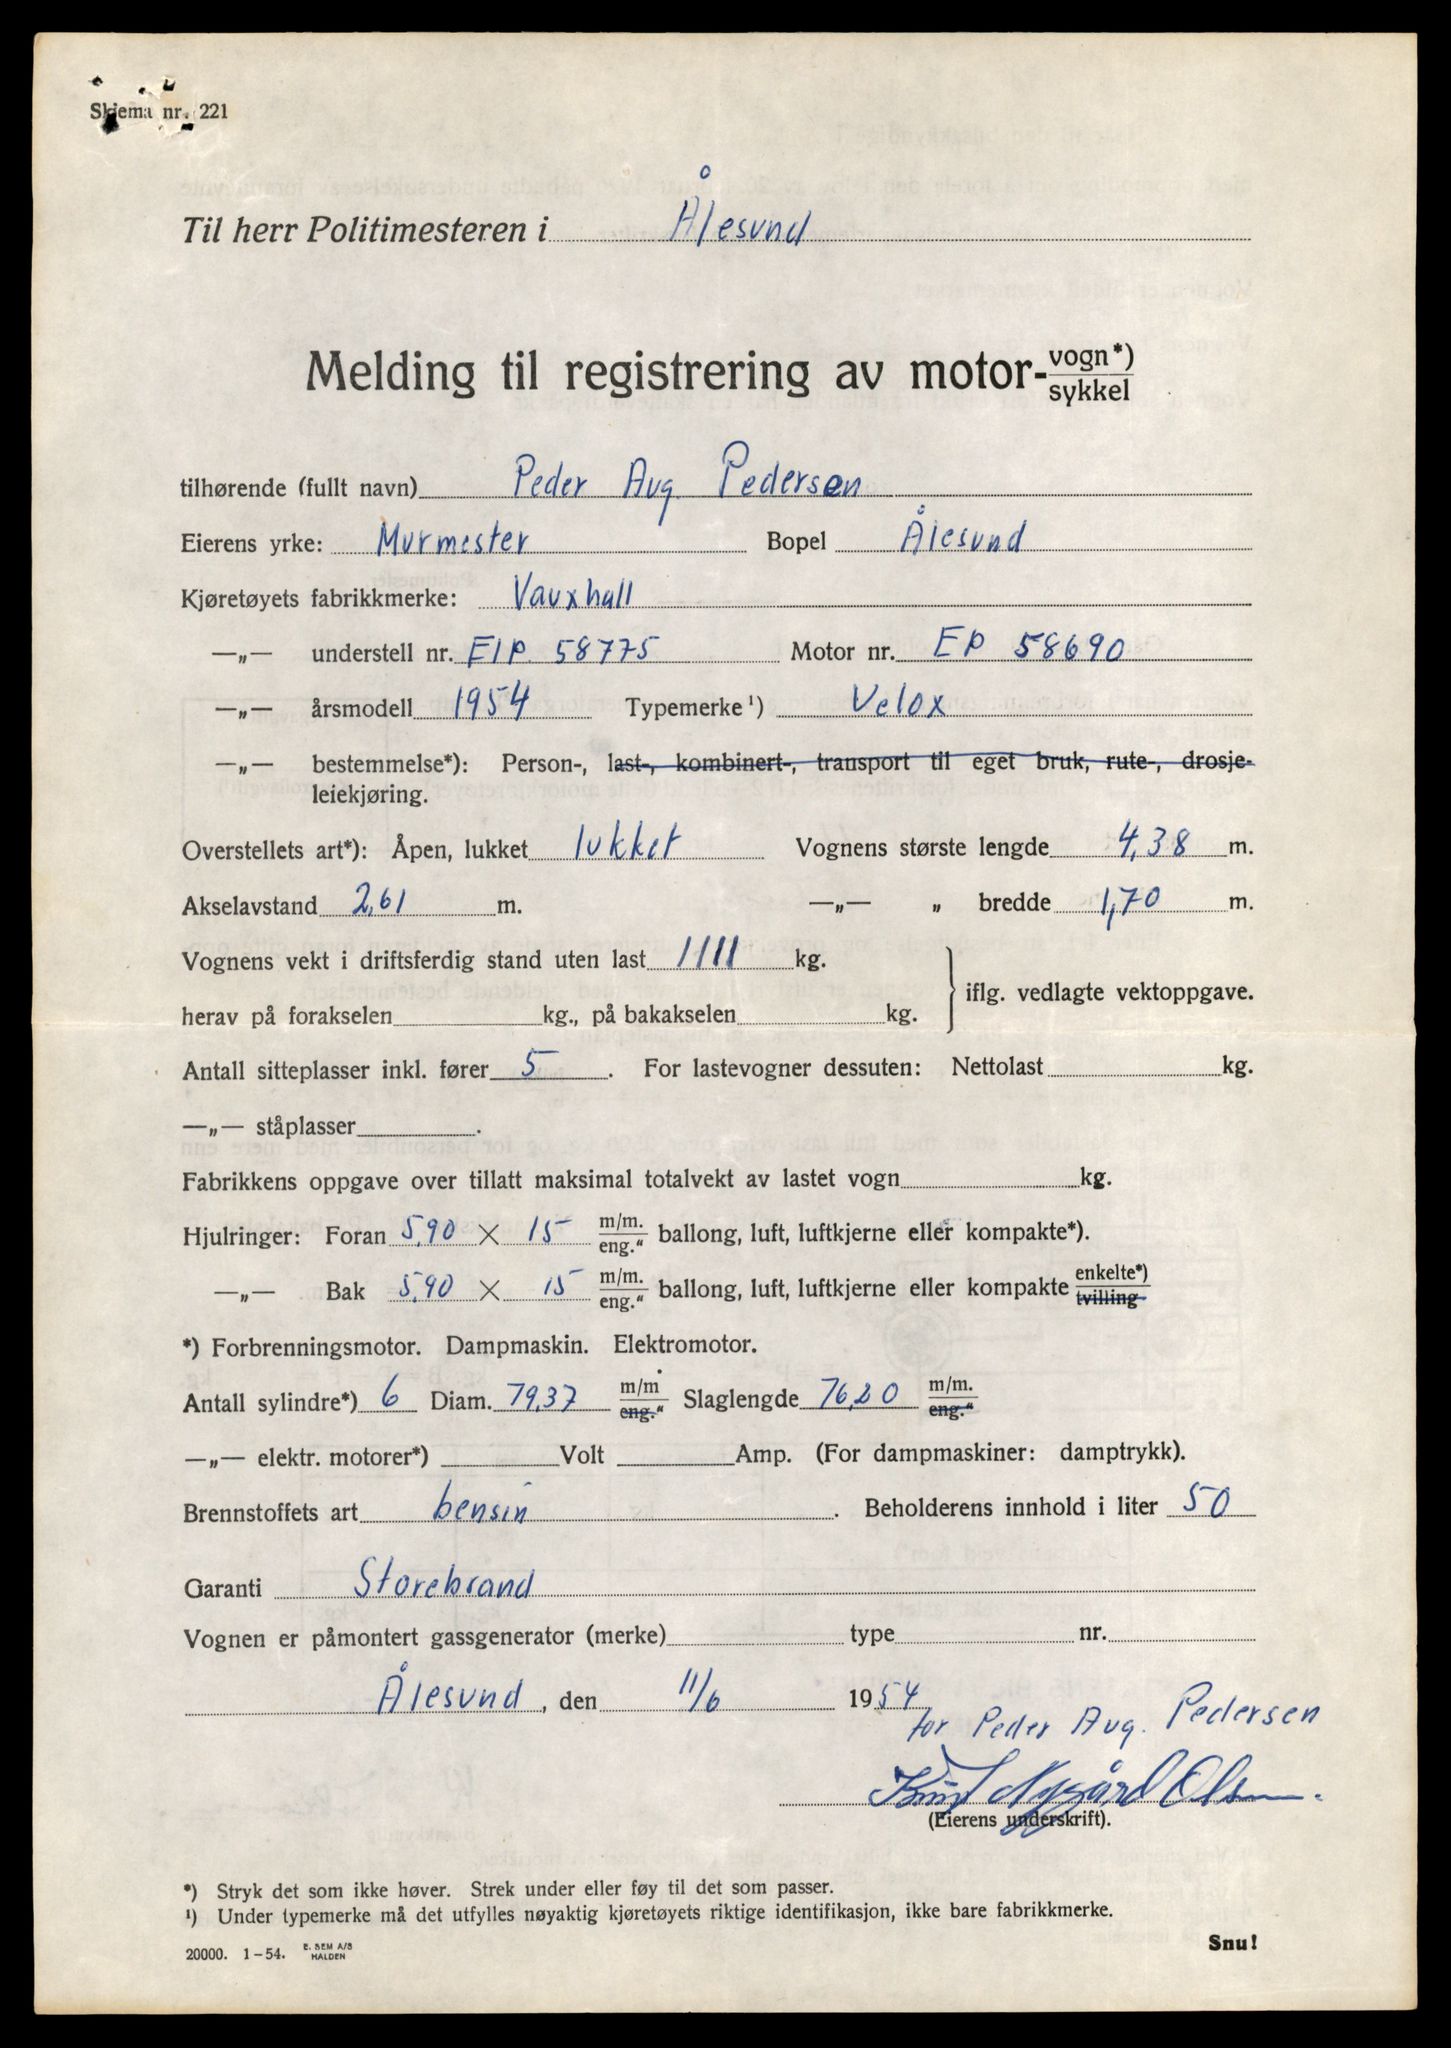 Skjema nr. 221
Til herr Politimesteren i Ålesund
Melding til registrering av motor- vogn*) / sykkel
tilhørende (fullt navn) Peder Aug. Pedersen
Eierens yrke: Murmester Bopel Ålesund
Kjøretøyets fabrikkmerke: Vauxhall
—„— understell nr. EIP. 58775 Motor nr. EP 58690
—„— årsmodell 1954 Typemerke¹) Velox
—„— bestemmelse*): Person-, last-, kombinert-, transport til eget bruk, rute-, drosje-
leiekjøring.
Overstellets art*): Åpen, lukket lukket Vognens største lengde 4,38 m.
Akselavstand 2,61 m. —„— „ bredde 1,70 m.
Vognens vekt i driftsferdig stand uten last 1111 kg.
iflg. vedlagte vektoppgave.
herav på forakselen kg., på bakakselen kg.
Antall sitteplasser inkl. fører 5. For lastevogner dessuten: Nettolast kg.
—„— ståplasser .
Fabrikkens oppgave over tillatt maksimal totalvekt av lastet vogn kg.
Hjulringer: Foran 5,90 × 15 m/m. / eng.“ ballong, luft, luftkjerne eller kompakte*).
—„— Bak 5,90 × 15 m/m. / eng.“ ballong, luft, luftkjerne eller kompakte enkelte*) / tvilling
*) Forbrenningsmotor. Dampmaskin. Elektromotor.
Antall sylindre*) 6 Diam. 79,37 m/m / eng.“ Slaglengde 76,20 m/m. / eng.“
—„— elektr. motorer*) Volt Amp. (For dampmaskiner: damptrykk).
Brennstoffets art bensin. Beholderens innhold i liter 50
Garanti Storebrand
Vognen er påmontert gassgenerator (merke) type nr.
Ålesund, den 11/6 1954
for Peder Aug. Pedersen
Knut Nygård Olsen.
(Eierens underskrift).
*) Stryk det som ikke høver. Strek under eller føy til det som passer.
¹) Under typemerke må det utfylles nøyaktig kjøretøyets riktige identifikasjon, ikke bare fabrikkmerke.
20000. 1-54. E. SEM A/S HALDEN
Snu!